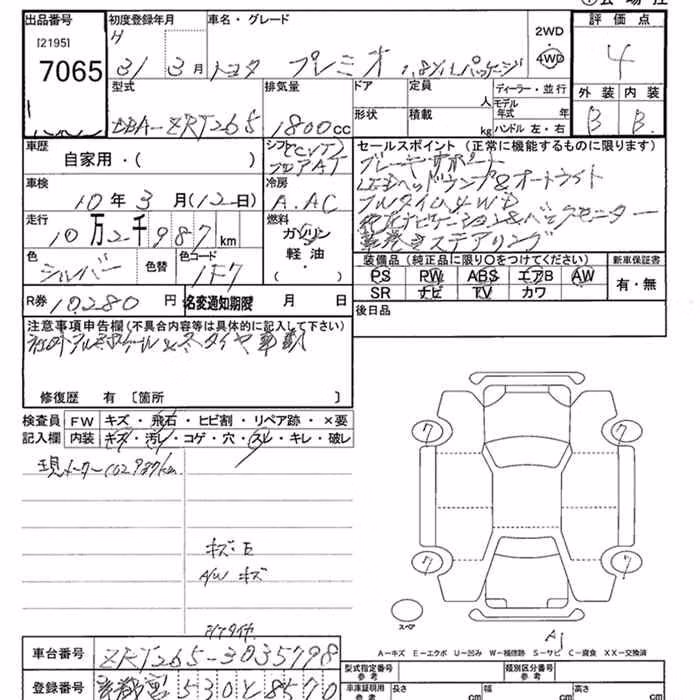 出品番号 初度登録年月 車名・グレード 2WD 評価点
[2195] H
7065 31 3月 トヨタ プレミオ 1.8X Lパッケージ 4WD 4
型式 排気量 ドア 定員 人 ディーラー・並行 外装 内装
DBA-ZRT265 1800cc 形状 積載 kg モデル年式 年 ハンドル 左・右 B B
車歴 自家用・( ) シフト (CVT) フロアAT セールスポイント (正常に機能するものに限ります)
車検 10年3月(12日) 冷房 A.AC
ブレーキサポート
LEDヘッドランプ&オートライト
フルタイム4WD
ナビゲーション&バックモニター
革巻きステアリング
走行 10万2千987km 燃料 ガソリン 軽油・( )
色 シルバー 色替 色コード 1F7
装備品 (純正品に限り○をつけてください) 新車保証書
PS PW ABS エアB AW 有・無
SR ナビ TV カワ
R券 10,280円 名変通知期限 月 日 後日品
注意事項申告欄 (不具合内容等は具体的に記入して下さい)
社外アルミホイール&冬タイヤ
修復歴 有 〔箇所 〕
検査員 FW キズ・飛石・ヒビ割・リペア跡・×要
記入欄 内装 キズ・汚レ・コゲ・穴・スレ・キレ・破レ
現メーター102,987km
キズ・E
A/W キズ
7 7
7 7
スペア
A1
A－キズ E－エクボ U－凹み W－補修跡 S－サビ C－腐食 XX－交換済
車台番号 ZRT265-3035798
登録番号 530 8570
型式指定番号 参考 類別区分番号 参考
車庫証明用 参考 長さ cm 幅 cm 高さ cm